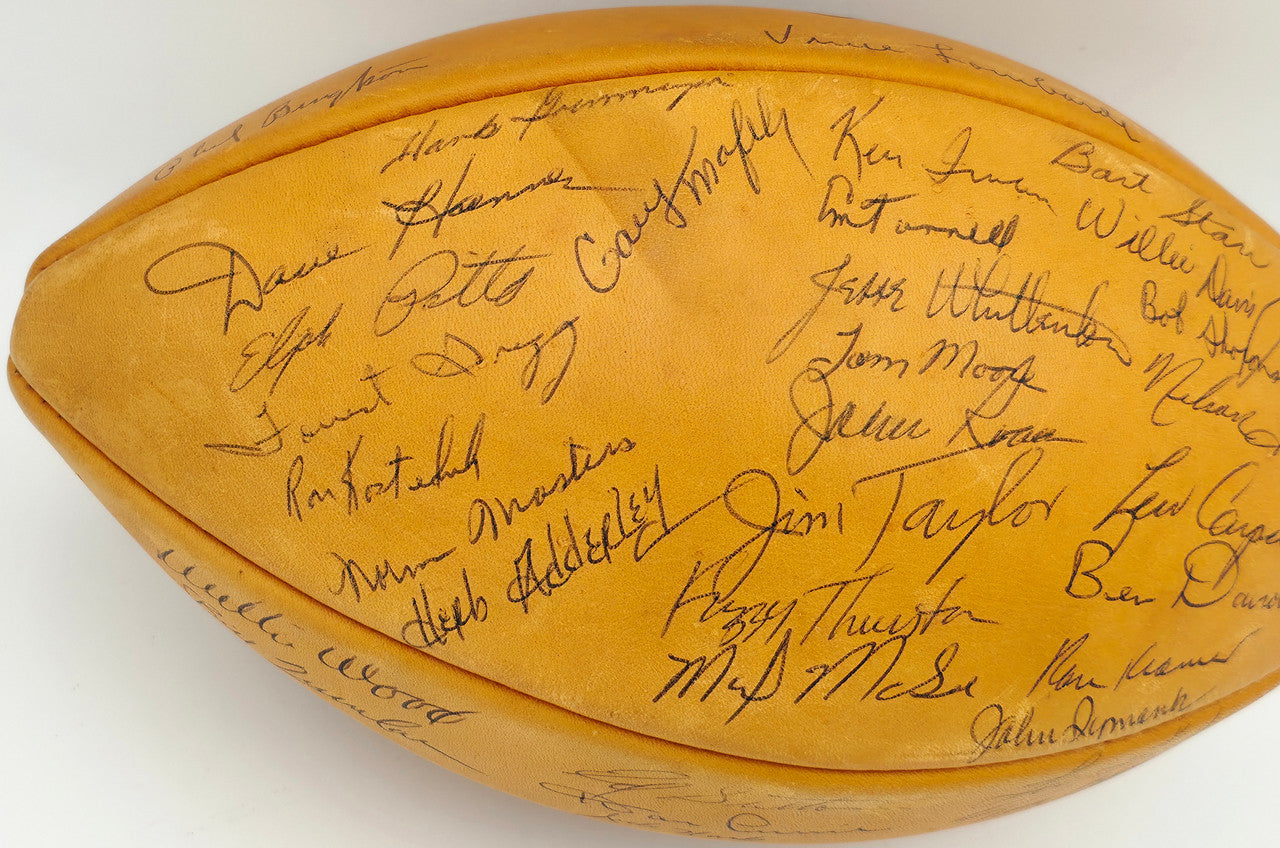 Vince Lombardi
Phil Bengtson
Hank Gremminger
Dave Hanner
Elijah Pitts
Gary Knafelc
Forrest Gregg
Ron Kostelnik
Norm Masters
Herb Adderley
Ken Iman
Em Tunnell
Jesse Whittenton
Tom Moore
John Roach
Jim Taylor
Fuzzy Thurston
Max McGee
Bart Starr
Willie Davis
Bob
Nelson
Lew Carpe
Ben Davi
Ron Kramer
John Symank
Willie Wood